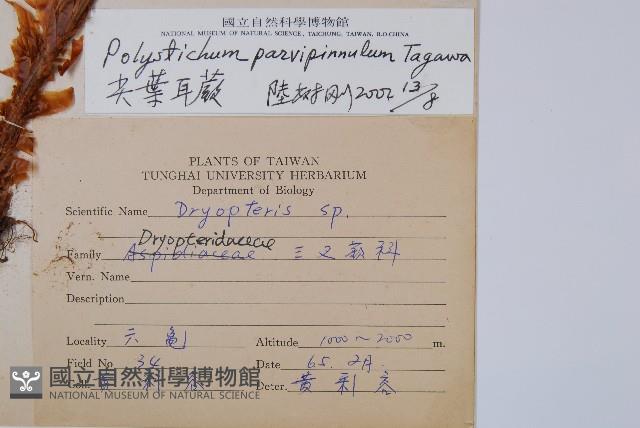 國立自然科學博物館
NATIONAL MUSEUM OF NATURAL SCIENCE, TAICHUNG, TAIWAN, R.O.CHINA
Polystichum parvipinnulum Tagawa
尖葉耳蕨 陸樹刚 2002 13/8
PLANTS OF TAIWAN
TUNGHAI UNIVERSITY HERBARIUM
Department of Biology
Scientific Name Dryopteris sp.
Dryopteridaceae
Family Aspidiaceae 三叉蕨科
Vern. Name
Description
Locality 六龜 Altitude 1000~2000 m.
Field No. 34 Date 65. 2月.
Deter. 黃
國立自然科學博物館
NATIONAL MUSEUM OF NATURAL SCIENCE